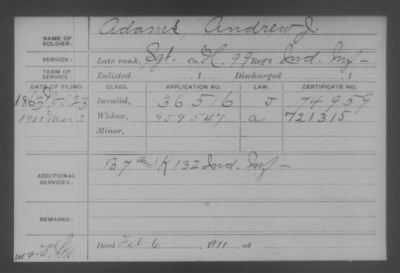 NAME OF SOLDIER: Adams, Andrew J.
SERVICE: Late rank, Sgt. Co. H, 99 Reg't Ind. Inf-
TERM OF SERVICE: Enlisted , 1 Discharged , 1
DATE OF FILING. CLASS. APPLICATION NO. LAW. CERTIFICATE NO.
Invalid, 36516 74959
1911 Mar 2 Widow, 959547 a 721315
Minor,
ADDITIONAL SERVICES: B 7 and K 132 Ind. Inf-
REMARKS:
Died Feb-6 , 1911, at